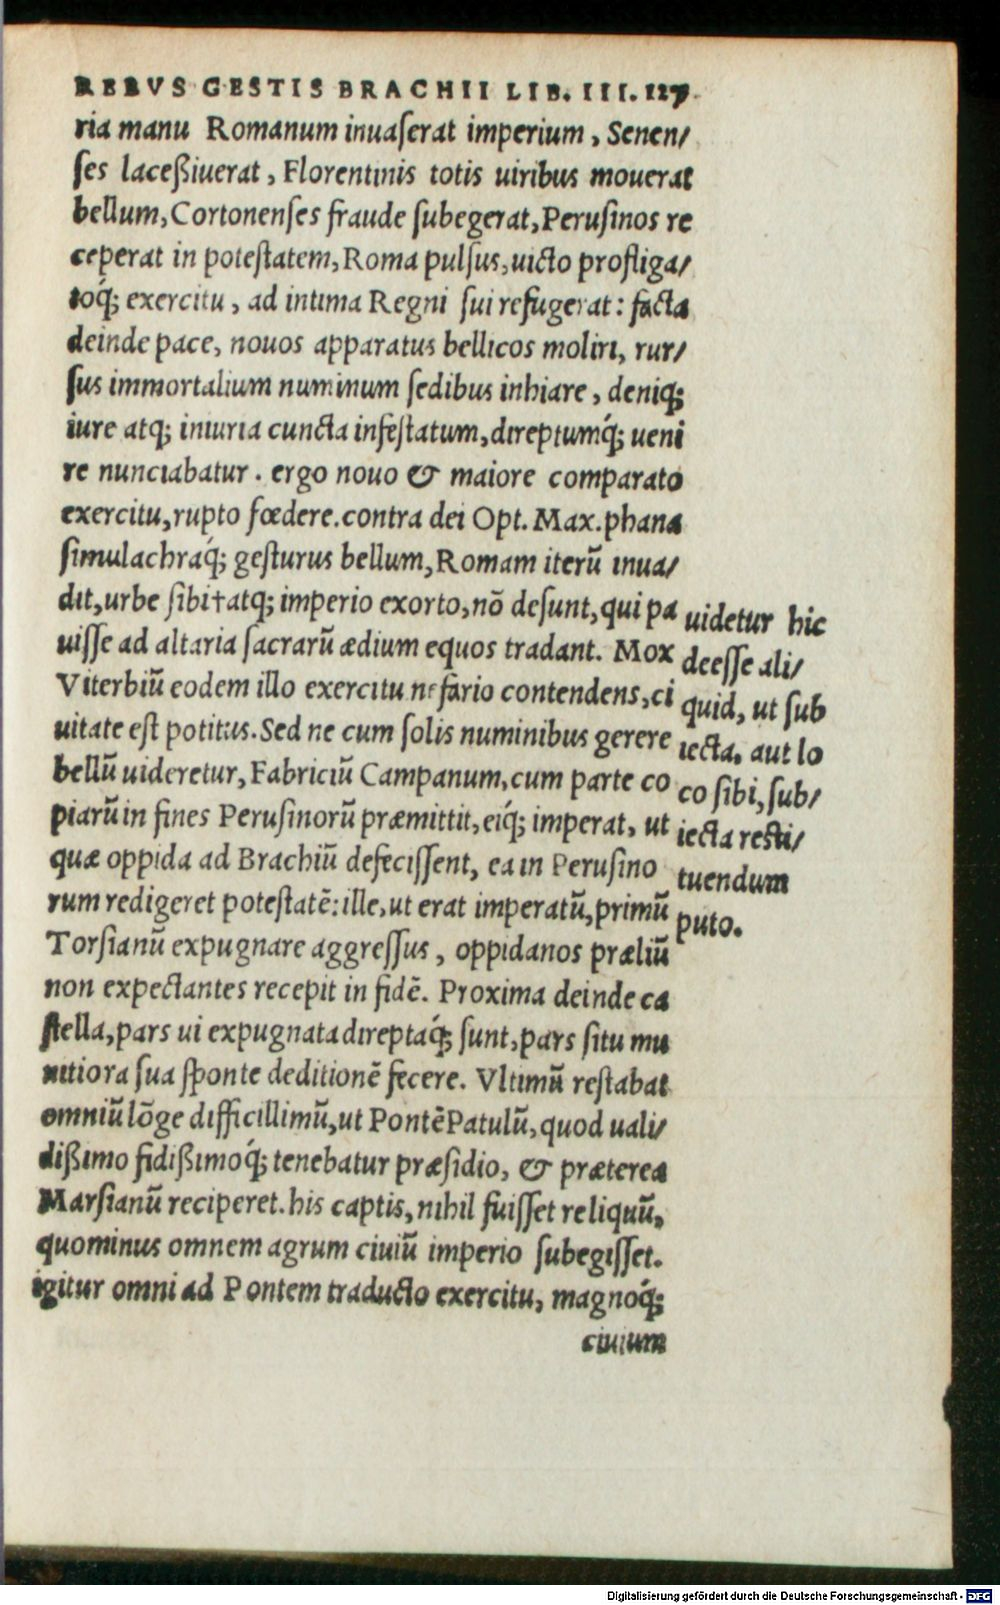 REBVS GESTIS BRACHII LIB. III. 127
ria manu Romanum inuaſerat imperium, Senen/
ſes laceßiuerat, Florentinis totis uiribus mouerat
bellum, Cortonenſes fraude ſubegerat, Peruſinos re
ceperat in poteſtatem, Roma pulſus, uicto profliga/
toq́; exercitu, ad intima Regni ſui refugerat: facta
deinde pace, nouos apparatus bellicos moliri, rur/
ſus immortalium numinum ſedibus inhiare, deniq;
iure atq; iniuria cuncta infeſtatum, direptumq́; ueni
re nunciabatur. ergo nouo & maiore comparato
exercitu, rupto fœdere. contra dei Opt. Max. phana
ſimulachraq́; geſturus bellum, Romam iterū inua/
dit, urbe ſibi†atq; imperio exorto, nō deſunt, qui pa
uiſſe ad altaria ſacrarū ædium equos tradant. Mox
Viterbiū eodem illo exercitu nefario contendens, ci
uitate eſt potitus. Sed ne cum ſolis numinibus gerere
bellū uideretur, Fabriciū Campanum, cum parte co
piarū in fines Peruſinorū præmittit, eiq́; imperat, ut
quæ oppida ad Brachiū defeciſſent, ea in Peruſino
rum redigeret poteſtatē: ille, ut erat imperatū, primū
Torſianū expugnare aggreſſus, oppidanos præliū
non expectantes recepit in fidē. Proxima deinde ca
ſtella, pars ui expugnata direptaq́; ſunt, pars ſitu mu
nitiora ſua ſponte deditionē fecere. Vltimū reſtabat
omniū lōge difficillimū, ut Pontē Patulū, quod uali/
dißimo fidißimoq́; tenebatur præſidio, & præterea
Marſianū reciperet. his captis, nihil fuiſſet reliquū,
quominus omnem agrum ciuiū imperio ſubegiſſet.
igitur omni ad Pontem traducto exercitu, magnoq́;
ciuium
uidetur hic
deeſſe ali/
quid, ut ſub
iecta, aut lo
co ſibi, ſub/
iecta reſti/
tuendum
puto.
Digitalisierung gefördert durch die Deutsche Forschungsgemeinschaft - DFG